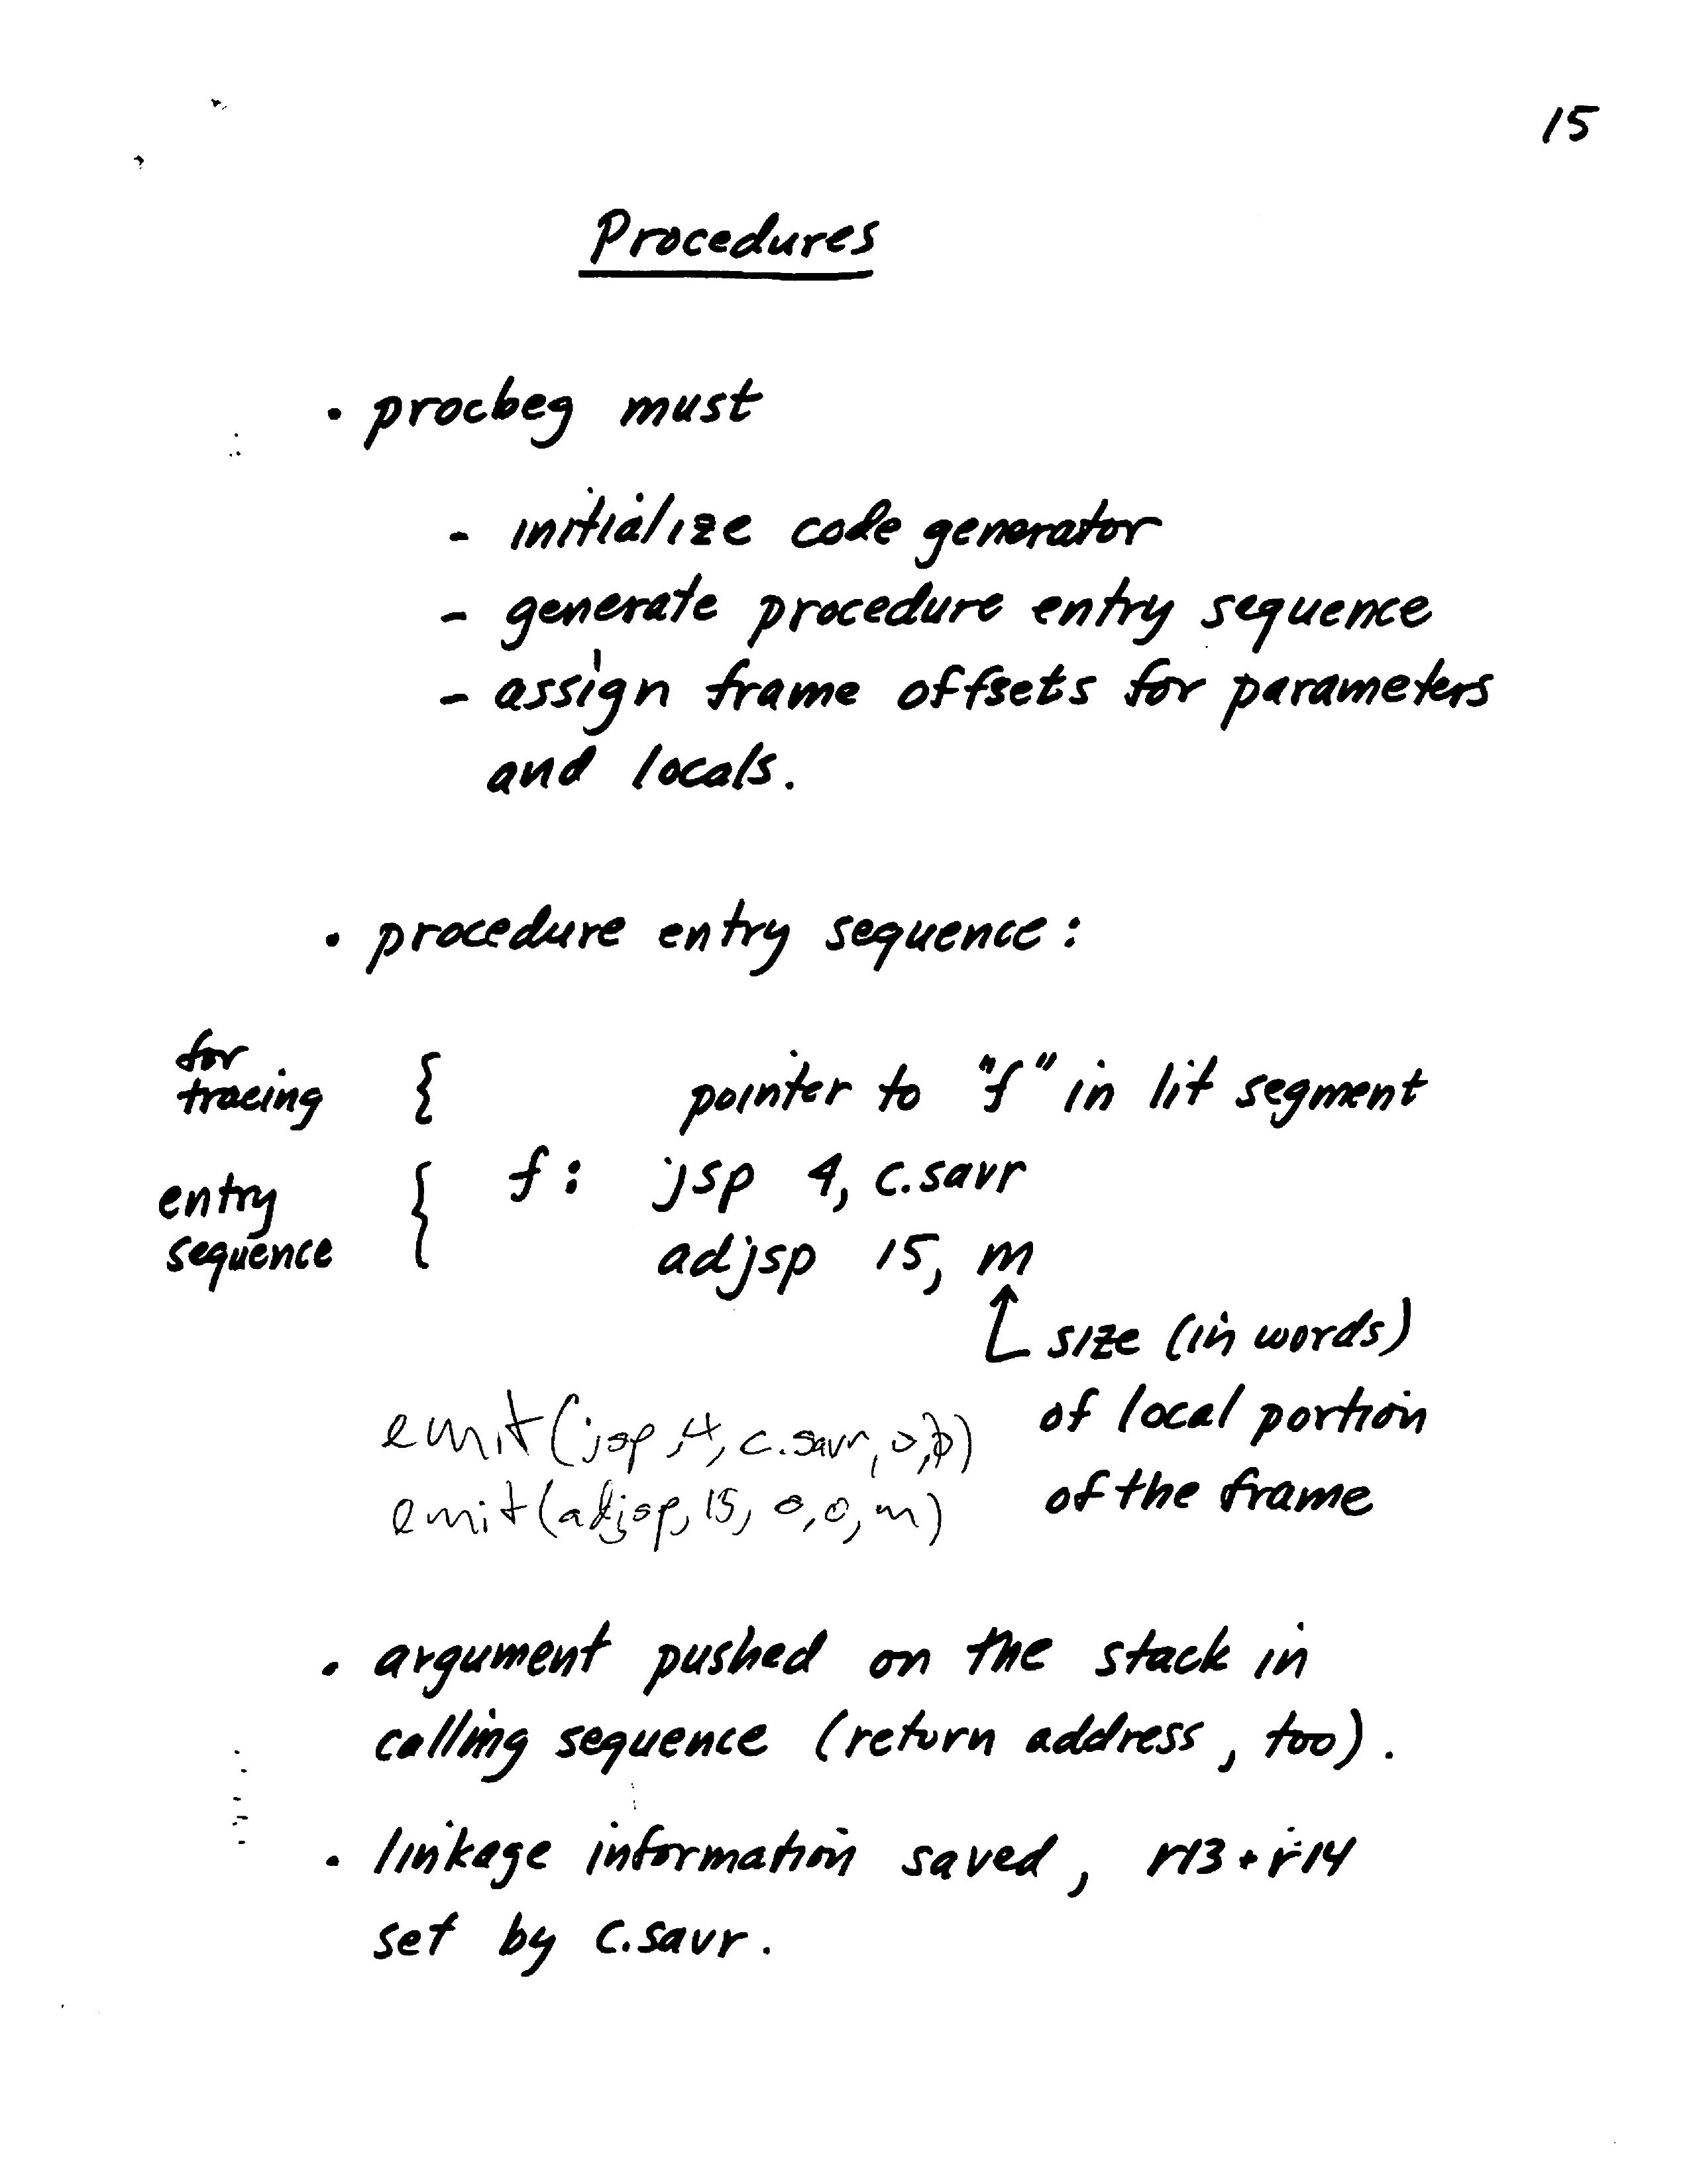 15
Procedures
• procbeg must
- initialize code generator
- generate procedure entry sequence
- assign frame offsets for parameters
and locals.
• procedure entry sequence:
for
tracing { pointer to "f" in lit segment
entry
sequence { f: jsp 4, c.savr
adjsp 15, m
size (in words)
of local portion
of the frame
emit(jsp,4, c.savr, 0,0)
emit(adjsp, 15, 0,0,m)
• argument pushed on the stack in
calling sequence (return address, too).
• linkage information saved, r13 + r14
set by c.savr.